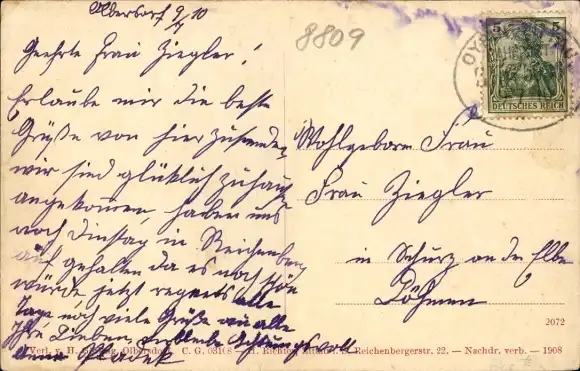 Olbersdorf 9/7 10
Geehrte Frau Ziegler!
Erlaube mir die beste
Grüße von hier zusenden,
wir sind glücklich zuhaus
angekommen, haben uns
noch Dinstag in Reichenberg
auf gehalten da es noch schön
würde, jetzt regnets alle
Tage noch viele Grüße an alle
Ihre Lieben, verbleibe Achtungsvoll
8809
OY
5 5
DEUTSCHES REICH
Wohlgeborn Frau
Frau Ziegler
in Schurz an der Elbe
Böhmen
2072
Verl. v. H. Olbersdorf C. G. 03108 H. Richter, Reichenbergerstr. 22. — Nachdr. verb. — 1908